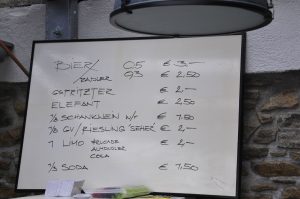 BIER/ 0,5 € 3,—
/RADLER 0,3 € 2,50
GSPRITZTER € 2,—
ELEFANT € 2,50
1/8 SCHANKWEIN W/R € 1,50
1/8 GV/RIESLING 'SEHER' € 2,—
1 LIMO € 2,—
ALMDUDLER
COLA
1/2 SODA € 1,50